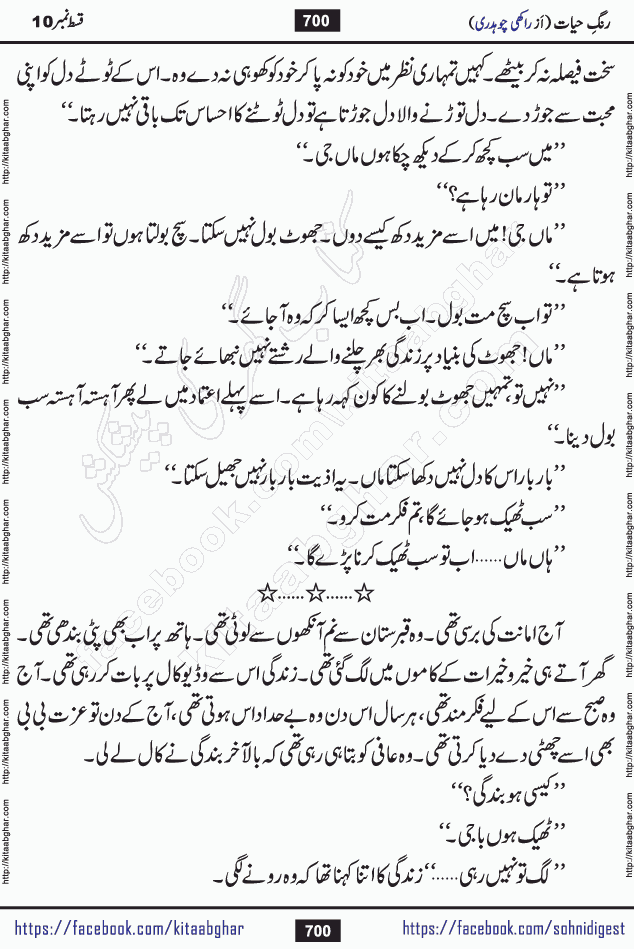 رنگِ حیات (از راکھی چوہدری)
700
قسط نمبر 10
سخت فیصلہ نہ کر بیٹھے۔ کہیں تمہاری نظر میں خود کو نہ پا کر خود کو کھو ہی نہ دے وہ۔ اس کے ٹوٹے دل کو اپنی
محبت سے جوڑ دے۔ دل توڑنے والا دل جوڑتا ہے تو دل ٹوٹنے کا احساس تک باقی نہیں رہتا۔‘‘
’’میں سب کچھ کر کے دیکھ چکا ہوں ماں جی۔‘‘
’’تو ہار مان رہا ہے؟‘‘
’’ماں جی! میں اسے مزید دکھ کیسے دوں۔ جھوٹ بول نہیں سکتا۔ سچ بولتا ہوں تو اسے مزید دکھ
ہوتا ہے۔‘‘
’’تو اب سچ مت بول۔ اب بس کچھ ایسا کر کہ وہ آ جائے۔‘‘
’’ماں! جھوٹ کی بنیاد پر زندگی بھر چلنے والے رشتے نہیں نبھائے جاتے۔‘‘
’’نہیں تو، تمہیں جھوٹ بولنے کا کون کہہ رہا ہے۔ اسے پہلے اعتماد میں لے پھر آہستہ آہستہ سب
بول دینا۔‘‘
’’بار بار اس کا دل نہیں دکھا سکتا ماں۔ یہ اذیت بار بار نہیں جھیل سکتا۔‘‘
’’سب ٹھیک ہو جائے گا، تم فکر مت کرو۔‘‘
’’ہاں ماں...... اب تو سب ٹھیک کرنا پڑے گا۔‘‘
☆......☆......☆
آج امانت کی برسی تھی۔ وہ قبرستان سے نم آنکھوں سے لوٹی تھی۔ ہاتھ پر اب بھی پٹی بندھی تھی۔
گھر آتے ہی خیر و خیرات کے کاموں میں لگ گئی تھی۔ زندگی اس سے وڈیو کال پر بات کر رہی تھی۔ آج
وہ صبح سے اس کے لیے فکرمند تھی، ہر سال اس دن وہ بے حد اداس ہوتی تھی، آج کے دن تو عزت بی بی
بھی اسے چھٹی دے دیا کرتی تھی۔ وہ عافی کو بتا ہی رہی تھی کہ بالآخر بندگی نے کال لے لی۔
’’کیسی ہو بندگی؟‘‘
’’ٹھیک ہوں باجی۔‘‘
’’لگ تو نہیں رہی......‘‘ زندگی کا اتنا کہنا تھا کہ وہ رونے لگی۔
https://facebook.com/kitaabghar
700
https://facebook.com/sohnidigest
http://kitaabghar.com http://kitaabghar.com http://kitaabghar.com http://kitaabghar.com http://kitaabghar.com http://kitaabghar.com http://kitaabghar.com http://kitaabghar.com
http://kitaabghar.com http://kitaabghar.com http://kitaabghar.com http://kitaabghar.com http://kitaabghar.com http://kitaabghar.com http://kitaabghar.com http://kitaabghar.com
کتاب گھر کی پیشکش
facebook.com/kitaabghar
kitaabghar.com